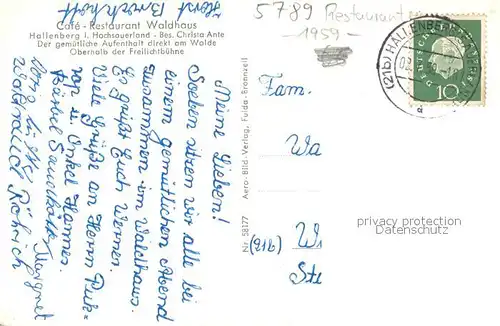 Horst
5789 Restaurant
1959-
Café - Restaurant Waldhaus
Hallenberg i. Hochsauerland - Bes. Christa Ante
Der gemütliche Aufenthalt direkt am Walde
Oberhalb der Freilichtbühne
(21b) HALLENBERG
DEUTSCHE
10
Meine Lieben!
Soeben sitzen wir alle bei
einem gemütlichen Abend
zusammen im Waldhaus.
Es grüßt Euch Werner.
Viele Grüße an Herrn
u. Onkel Hannes.
Margret
Waltraud Röhrich
Nr. 58177
Aero-Bild-Verlag, Fulda-Bronnzell
Fam.
Wa
(21b) Wi
Ste
privacy protection
Datenschutz